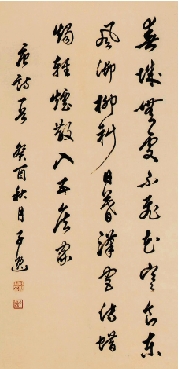 春城無處不飛花寒食東
風御柳斜日暮漢宮傳蠟
燭輕煙散入五侯家
唐詩一首 癸酉秋月